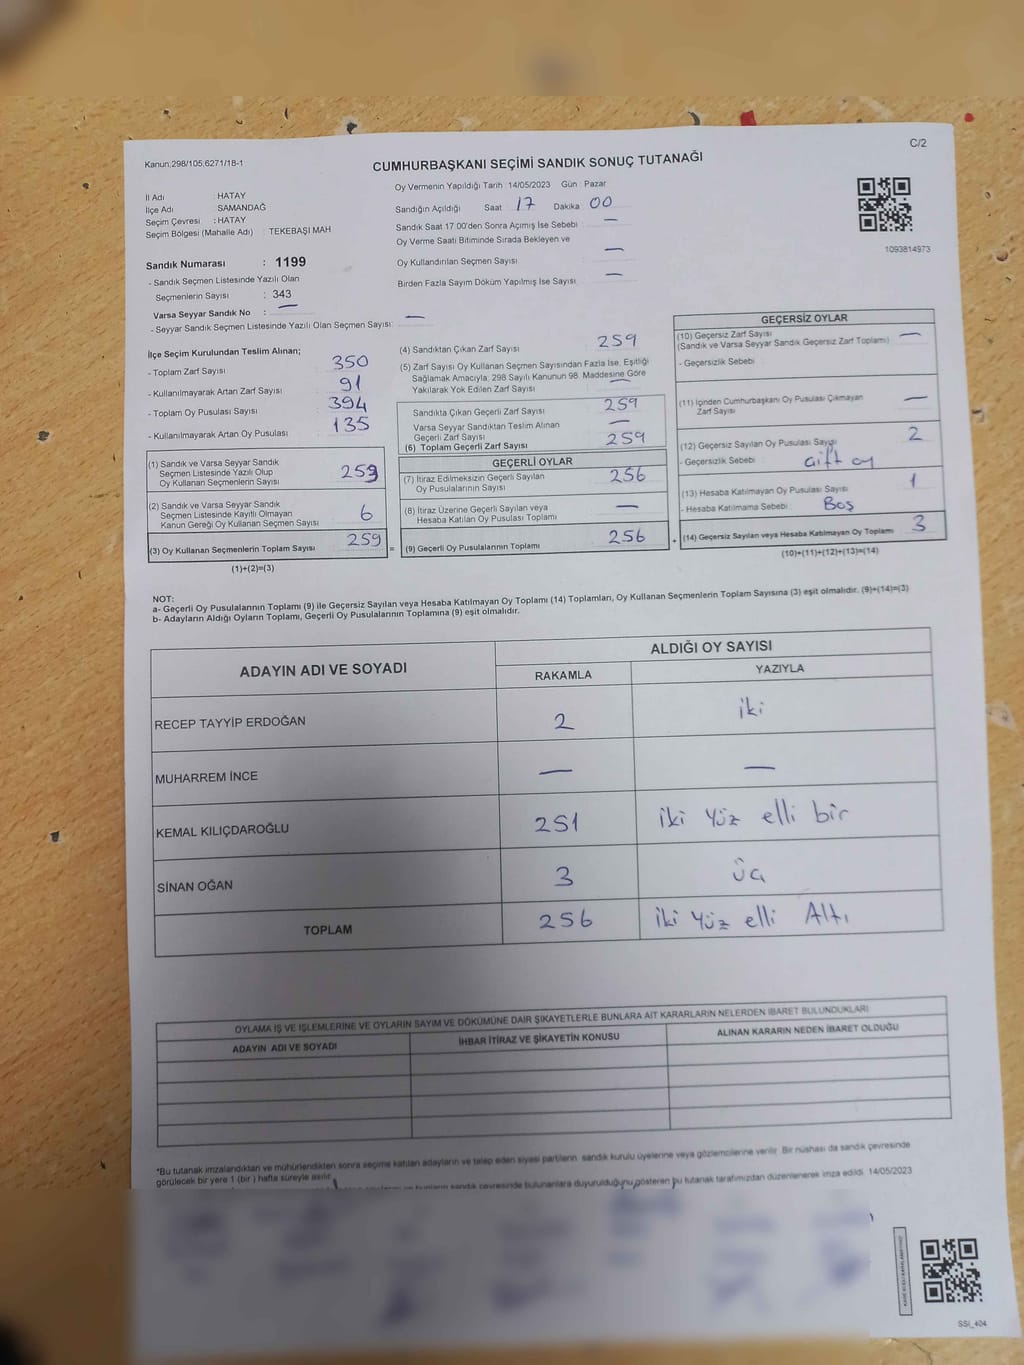 C/2
Kanun,298/105,6271/18-1
CUMHURBAŞKANI SEÇİMİ SANDIK SONUÇ TUTANAĞI
Oy Vermenin Yapıldığı Tarih 14/05/2023 Gün : Pazar
İl Adı : HATAY
İlçe Adı SAMANDAĞ
Seçim Çevresi : HATAY
Seçim Bölgesi (Mahalle Adı) : TEKEBAŞI MAH
Sandığın Açıldığı Saat 17 Dakika 00
Sandık Saat 17.00'den Sonra Açımış İse Sebebi : —
Oy Verme Saati Bitiminde Sırada Bekleyen ve
Oy Kullandırılan Seçmen Sayısı —
Birden Fazla Sayım Döküm Yapılmış İse Sayısı —
1093814973
Sandık Numarası : 1199
- Sandık Seçmen Listesinde Yazılı Olan
Seçmenlerin Sayısı : 343
Varsa Seyyar Sandık No : —
- Seyyar Sandık Seçmen Listesinde Yazılı Olan Seçmen Sayısı: —
İlçe Seçim Kurulundan Teslim Alınan;
- Toplam Zarf Sayısı 350
- Kullanılmayarak Artan Zarf Sayısı 91
- Toplam Oy Pusulası Sayısı 394
- Kullanılmayarak Artan Oy Pusulası 135
(1) Sandık ve Varsa Seyyar Sandık
Seçmen Listesinde Yazılı Olup
Oy Kullanan Seçmenlerin Sayısı 259
(2) Sandık ve Varsa Seyyar Sandık
Seçmen Listesinde Kayıtlı Olmayan
Kanun Gereği Oy Kullanan Seçmen Sayısı 6
(3) Oy Kullanan Seçmenlerin Toplam Sayısı 259 =
(1)+(2)=(3)
(4) Sandıktan Çıkan Zarf Sayısı 259
(5) Zarf Sayısı Oy Kullanan Seçmen Sayısından Fazla İse, Eşitliği
Sağlamak Amacıyla, 298 Sayılı Kanunun 98. Maddesine Göre
Yakılarak Yok Edilen Zarf Sayısı —
Sandıkta Çıkan Geçerli Zarf Sayısı 259
Varsa Seyyar Sandıktan Teslim Alınan
Geçerli Zarf Sayısı —
(6) Toplam Geçerli Zarf Sayısı 259
GEÇERLİ OYLAR
(7) İtiraz Edilmeksizin Geçerli Sayılan
Oy Pusulalarının Sayısı 256
(8) İtiraz Üzerine Geçerli Sayılan veya
Hesaba Katılan Oy Pusulası Toplamı —
(9) Geçerli Oy Pusulalarının Toplamı 256 +
GEÇERSİZ OYLAR
(10) Geçersiz Zarf Sayısı
(Sandık ve Varsa Seyyar Sandık Geçersiz Zarf Toplamı) —
- Geçersizlik Sebebi :
(11) İçinden Cumhurbaşkanı Oy Pusulası Çıkmayan
Zarf Sayısı —
(12) Geçersiz Sayılan Oy Pusulası Sayısı 2
- Geçersizlik Sebebi : Çift oy
(13) Hesaba Katılmayan Oy Pusulası Sayısı 1
- Hesaba Katılmama Sebebi : Boş
(14) Geçersiz Sayılan veya Hesaba Katılmayan Oy Toplamı 3
(10)+(11)+(12)+(13)=(14)
NOT:
a- Geçerli Oy Pusulalarının Toplamı (9) ile Geçersiz Sayılan veya Hesaba Katılmayan Oy Toplamı (14) Toplamları, Oy Kullanan Seçmenlerin Toplam Sayısına (3) eşit olmalıdır. (9)+(14)=(3)
b- Adayların Aldığı Oyların Toplamı, Geçerli Oy Pusulalarının Toplamına (9) eşit olmalıdır.
ADAYIN ADI VE SOYADI
ALDIĞI OY SAYISI
RAKAMLA YAZIYLA
RECEP TAYYİP ERDOĞAN 2 iki
MUHARREM İNCE — —
KEMAL KILIÇDAROĞLU 251 iki yüz elli bir
SİNAN OĞAN 3 üç
TOPLAM 256 iki yüz elli Altı
OYLAMA İŞ VE İŞLEMLERİNE VE OYLARIN SAYIM VE DÖKÜMÜNE DAİR ŞİKAYETLERLE BUNLARA AİT KARARLARIN NELERDEN İBARET BULUNDUKLARI
ADAYIN ADI VE SOYADI İHBAR İTİRAZ VE ŞİKAYETİN KONUSU ALINAN KARARIN NEDEN İBARET OLDUĞU
*Bu tutanak imzalandıktan ve mühürlendikten sonra seçime katılan adayların ve talep eden siyasi partilerin, sandık kurulu üyelerine veya gözlemcilerine verilir. Bir nüshası da sandık çevresinde
görülecek bir yere 1 (bir) hafta süreyle asılır.
sandık çevresinde bulunanlara duyurulduğunu gösteren bu tutanak tarafımızdan düzenlenerek imza edildi. 14/05/2023
SSI_404